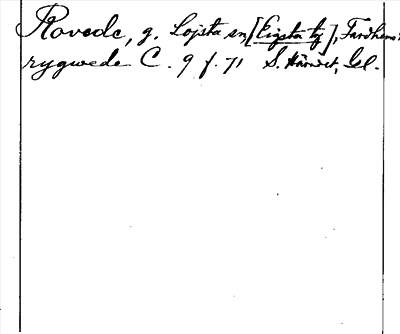 Rovede, g. Lojsta sn, [Eigsta by], Fardhems
rygwede C. 9 f. 71 S. Häradet, Gl.